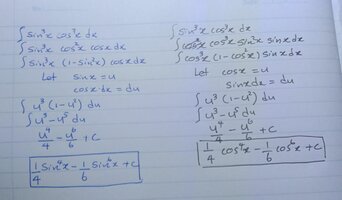 ∫ sin³x cos³x dx
∫ sin³x cos²x cosx dx
∫ sin³x (1-sin²x) cosx dx
Let sinx = u
cosx dx = du
∫ u³ (1-u²) du
∫ u³ - u⁵ du
u⁴/4 - u⁶/6 + c
1/4 sin⁴x - 1/6 sin⁶x + c
∫ sin³x cos³x dx
∫ cos³x sin²x sinx dx
∫ cos³x (1-cos²x) sinx dx
Let cosx = u
sinx dx = du
∫ u³ (1-u²) du
∫ u³ - u⁵ du
u⁴/4 - u⁶/6 + c
1/4 cos⁴x - 1/6 cos⁶x + c